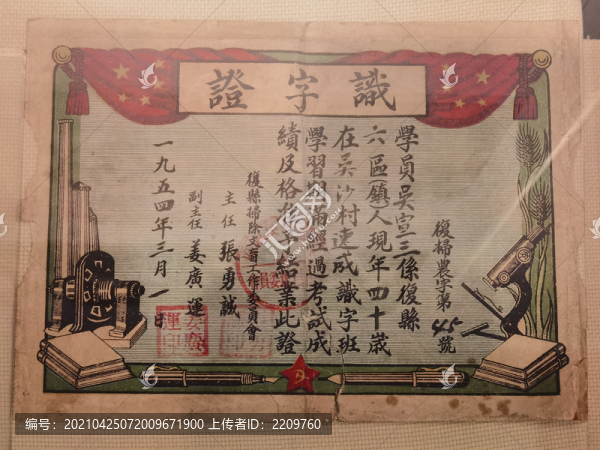 識字證
復掃農字第45號
學員吳宣三係復縣
六區鎮人現年四十歲
在吳沙村速成識字班
學習期滿經過考試成
績及格准予結業此證
復縣掃除文盲工作委員會
主任 張勇誠
副主任 姜廣運
一九五四年三月一日
编号：20210425072009671900 上传者ID：2209760